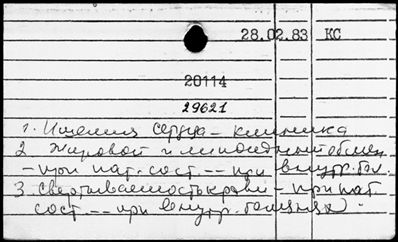 28.02.83 КС
20114
29621
1. Ишемия сердца – клиника
2. Жировой и липоидный обмен
– при пат. сост. -- при внутр. бол.
3. Свертываемость крови – при пат
сост. -- при внутр. болезнях